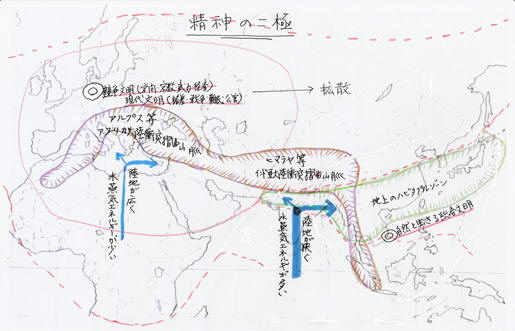 精神の二極
争文明(学問 宗教 武力
現代文明( 戦争 公害)
→ 拡散
アルプス等
アフリカ大陸衝突褶曲山脈
ヒマラヤ等
インド大陸衝突褶曲山脈
地上のハビタブルゾーン
◎自然と生きる 文明
陸地が広く
水蒸気エネルギーが少ない
陸地が狭く
水蒸気エネルギーが多い